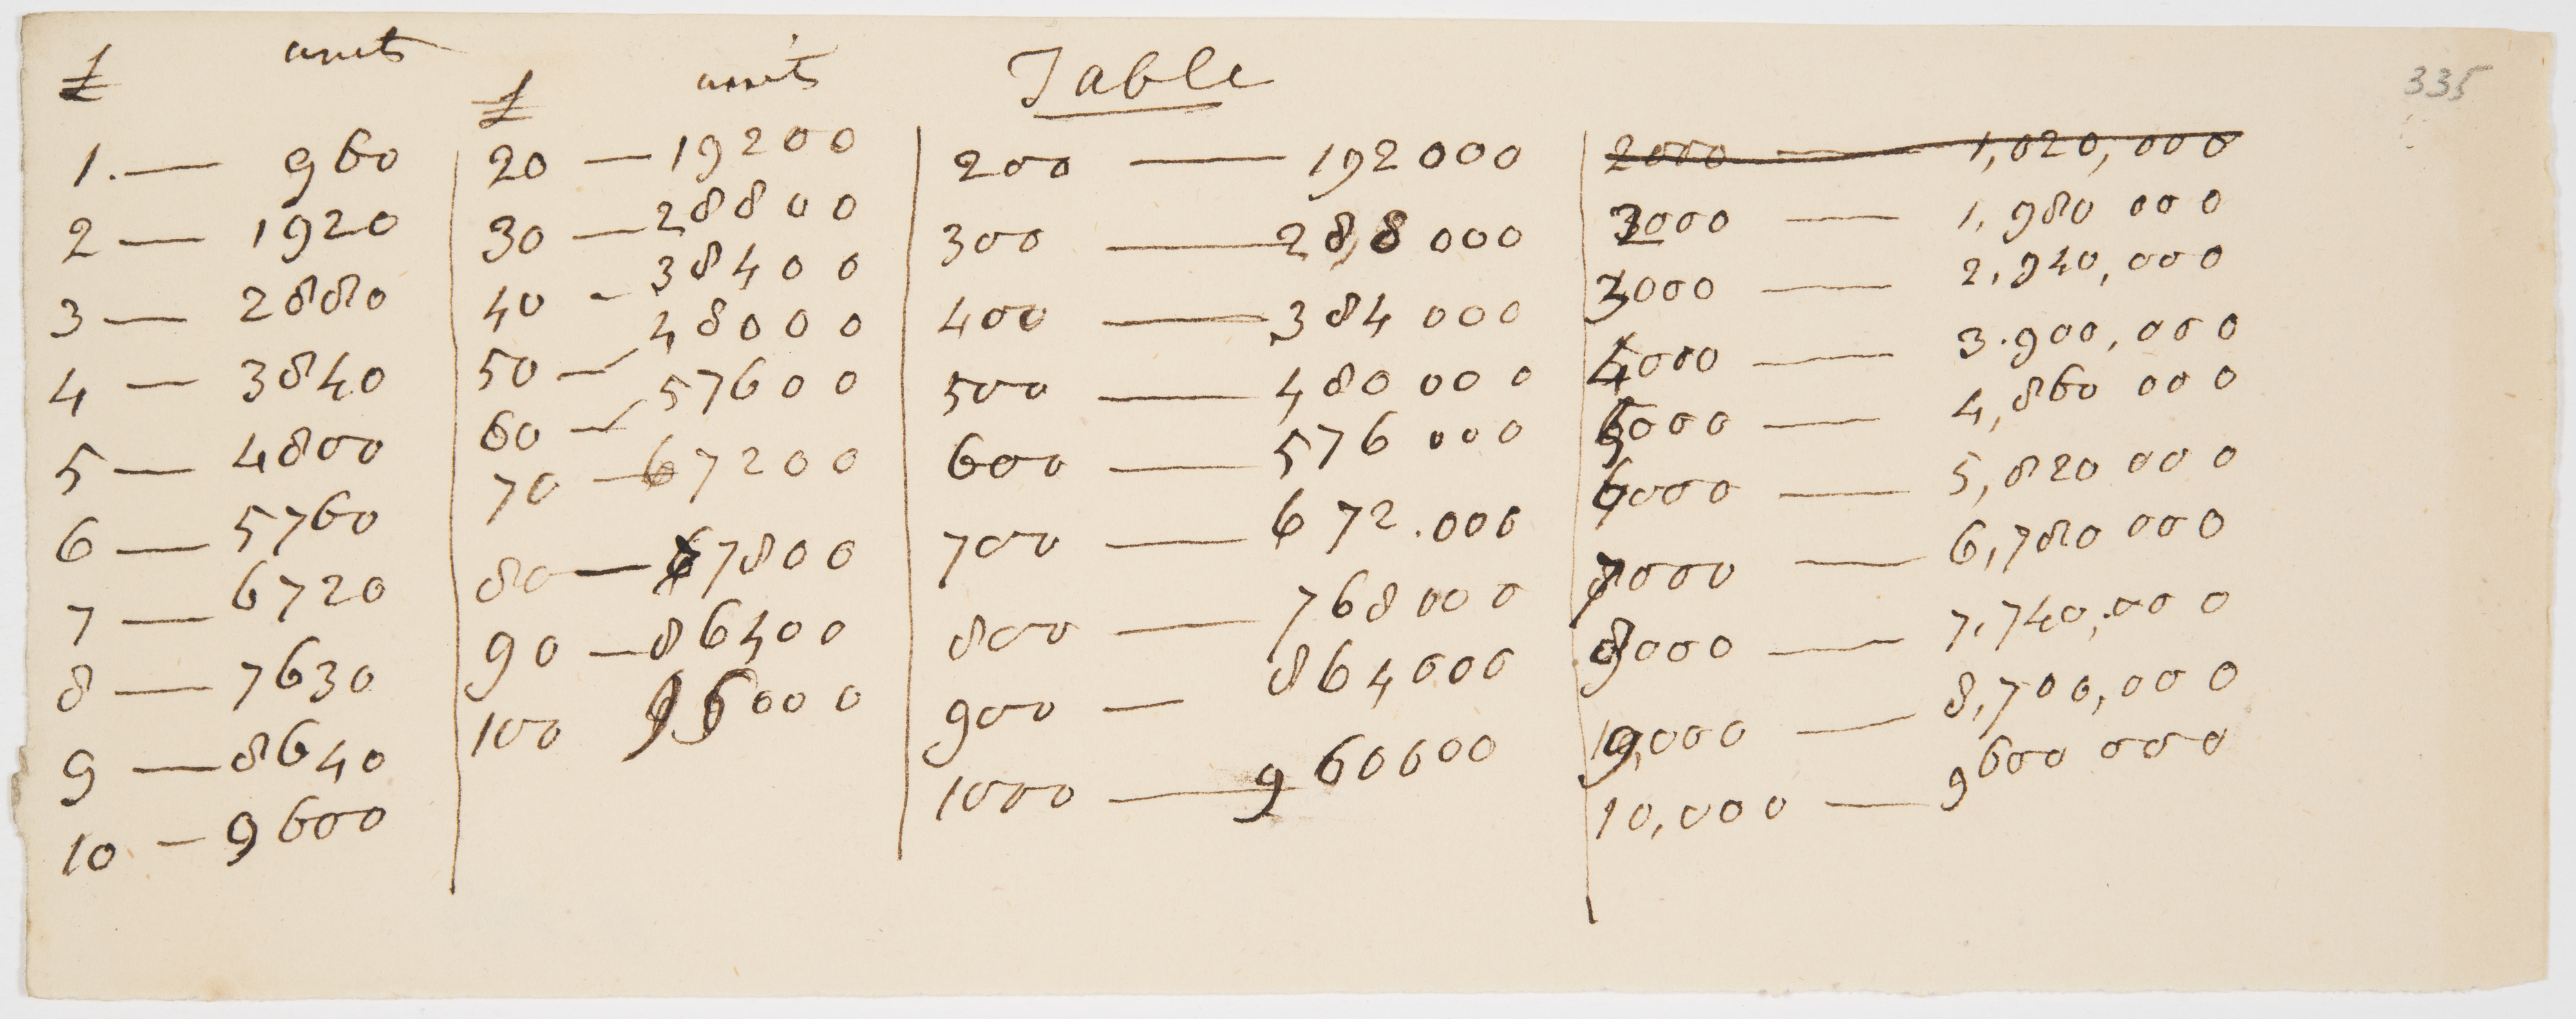 335
Table
£ units
1. — 960
2 — 1920
3 — 2880
4 — 3840
5 — 4800
6 — 5760
7 — 6720
8 — 7630
9 — 8640
10 — 9600
£ units
20 — 19200
30 — 28800
40 - 38400
50 — 48000
60 — 57600
70 — 67200
80 — 67800
90 — 86400
100 96000
200 — 192000
300 — 288000
400 — 384000
500 — 480000
600 — 576000
700 — 672.000
800 — 768000
900 — 864000
1000 — 960000
2000 — 1,020,000
2000 — 1,980 000
3000 — 2,940,000
4000 — 3.900,000
5000 — 4,860 000
6000 — 5,820 000
7000 — 6,780 000
8000 — 7,740,000
9,000 — 8,700,000
10,000 — 9600 000